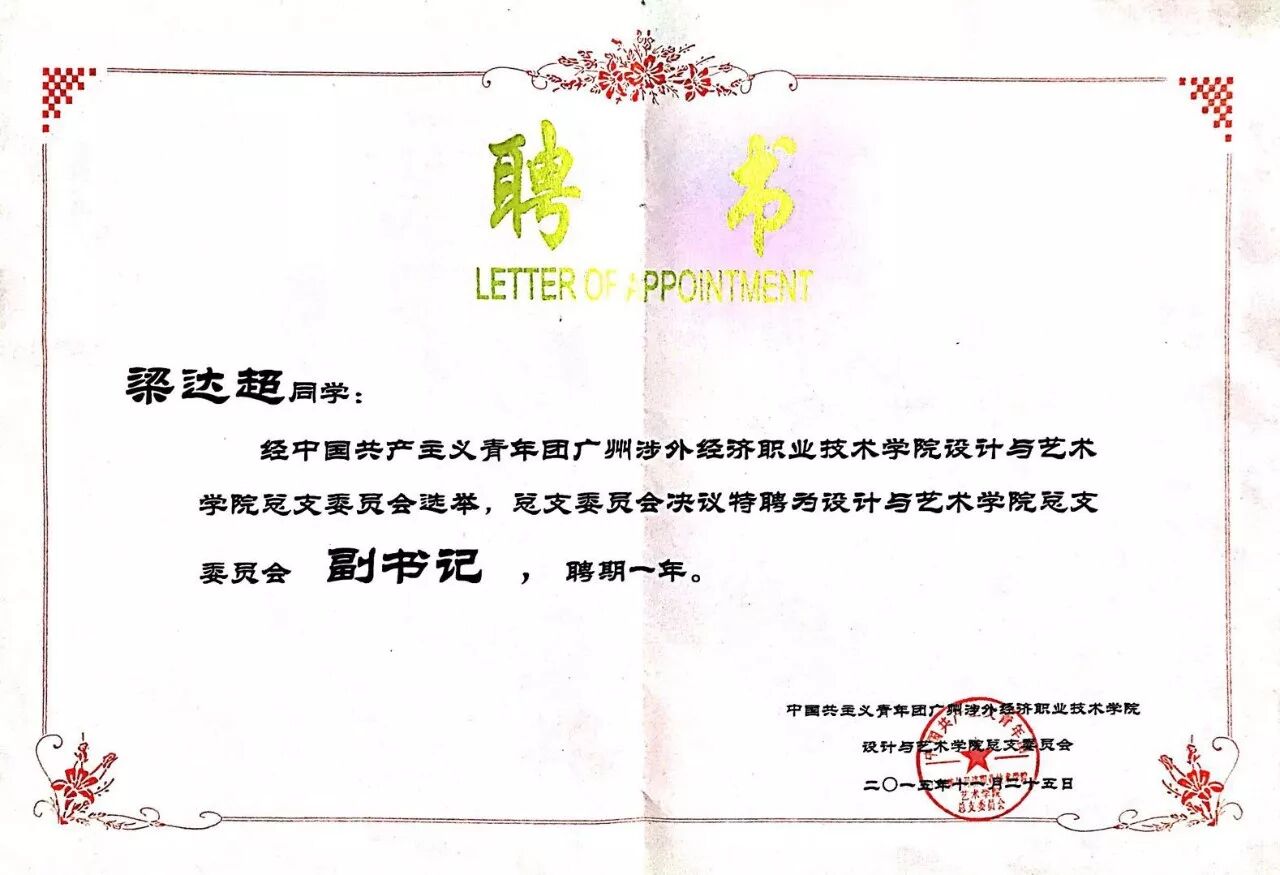 聘 书
LETTER OF APPOINTMENT
梁达超同学：
经中国共产主义青年团广州涉外经济职业技术学院设计与艺术
学院总支委员会选举，总支委员会决议特聘为设计与艺术学院总支
委员会 副书记 ， 聘期一年。
中国共主义青年团广州涉外经济职业技术学院
设计与艺术学院总支委员会
二〇一五年十一月二十五日
中国共产主义青年团
艺术学院
总支委员会